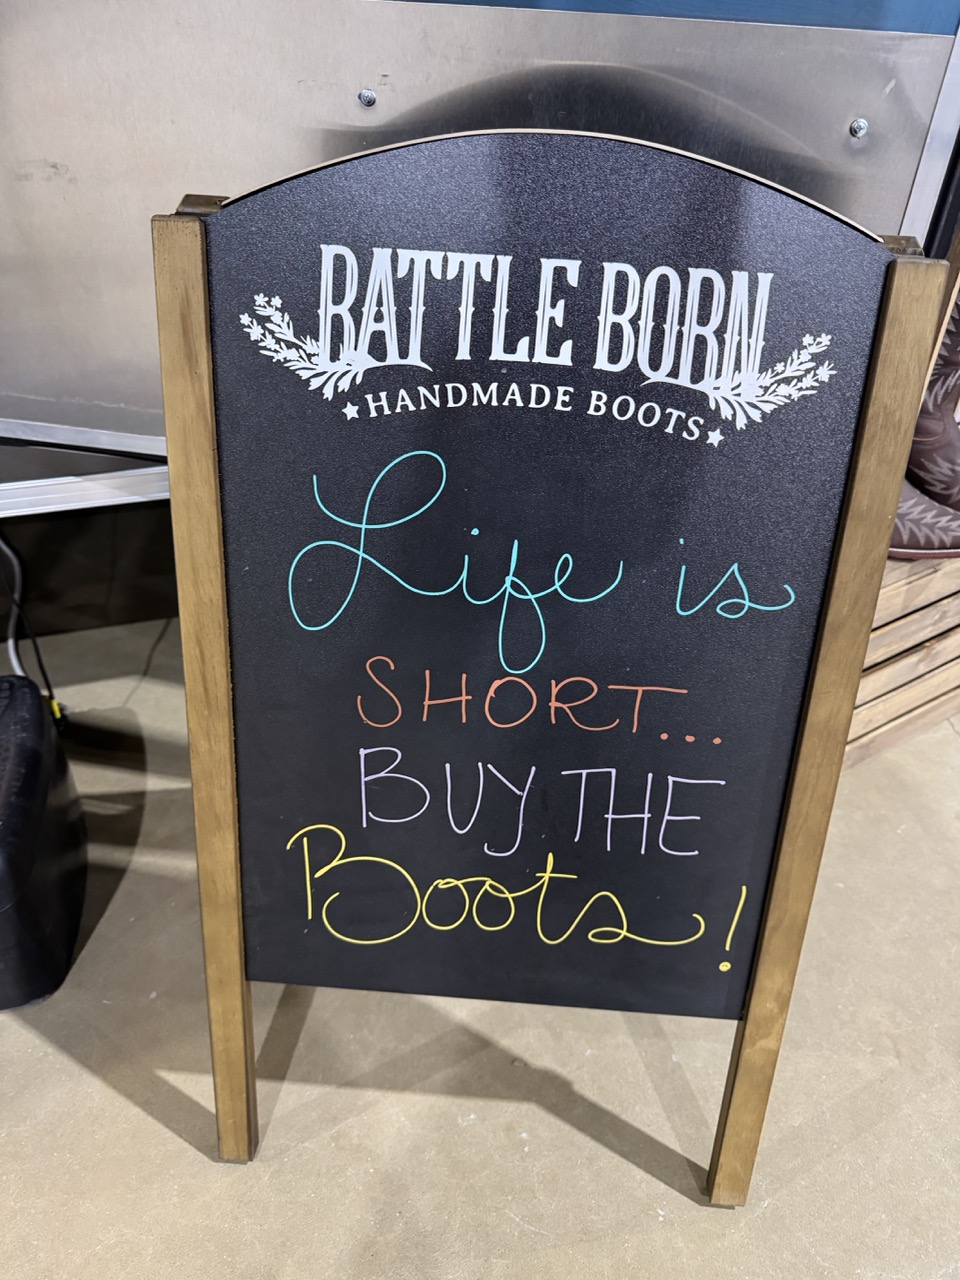 BATTLE BORN
HANDMADE BOOTS
Life is
SHORT...
BUY THE
Boots!